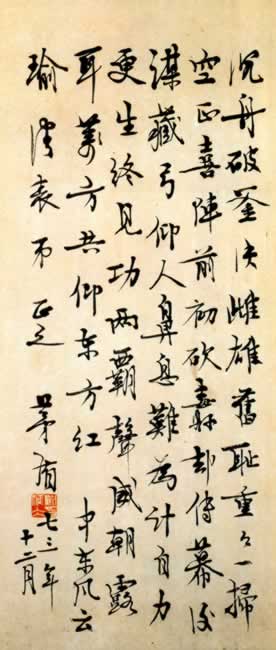 沉舟破釜决雌雄舊耻重々一掃
空正喜陣前初砍纛却傳幕後
謀藏弓仰人鼻息難為計自力
更生終見功两霸聲威朝露
耳萬方共仰东方红 中东风云
瑜清表弟 正之 茅盾 七三年
十二月